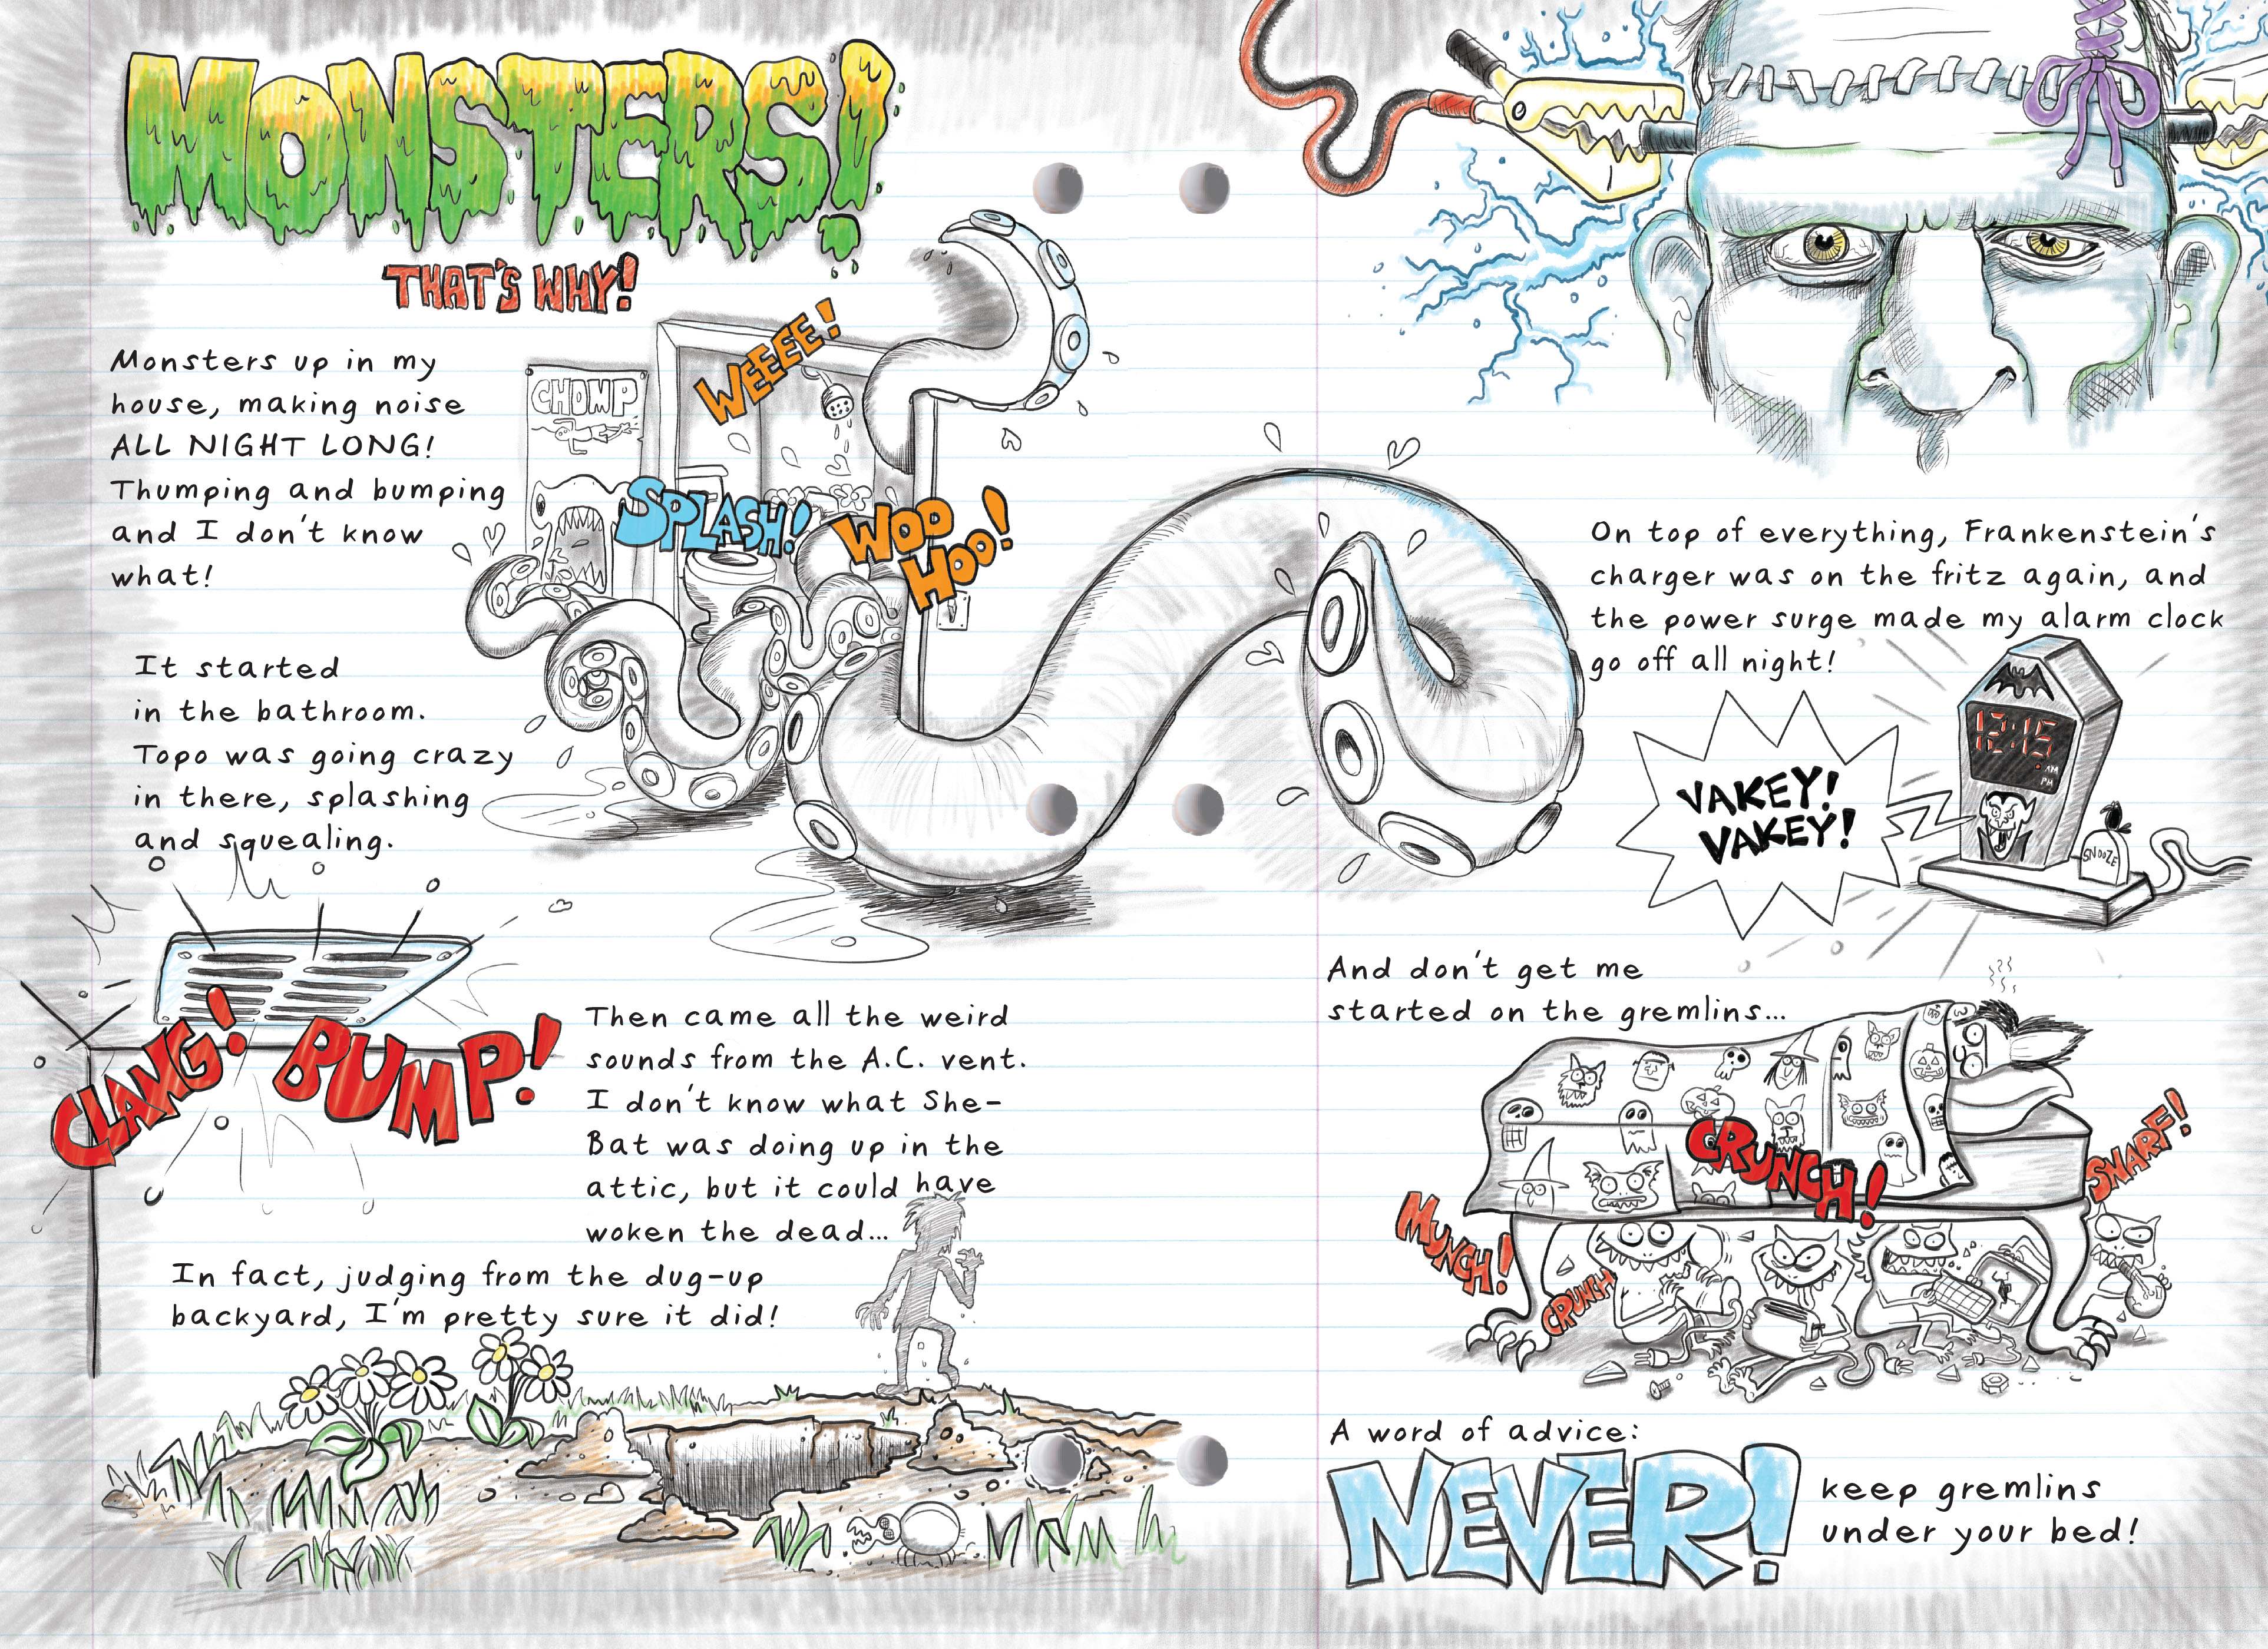 MONSTERS!
THAT'S WHY!
Monsters up in my
house, making noise
ALL NIGHT LONG!
Thumping and bumping
and I don't know
what!
WEEEE!
CHOMP
SPLASH!
WOO
HOO!
It started
in the bathroom.
Topo was going crazy
in there, splashing
and squealing.
CLANG!
BUMP!
Then came all the weird
sounds from the A.C. vent.
I don't know what She-
Bat was doing up in the
attic, but it could have
woken the dead...
In fact, judging from the dug-up
backyard, I'm pretty sure it did!
On top of everything, Frankenstein's
charger was on the fritz again, and
the power surge made my alarm clock
go off all night!
12:15
AM
PM
VAKEY!
VAKEY!
SNOOZE
And don't get me
started on the gremlins...
CRUNCH!
SNARF!
MUNCH!
CRUNCH
A word of advice:
NEVER!
keep gremlins
under your bed!